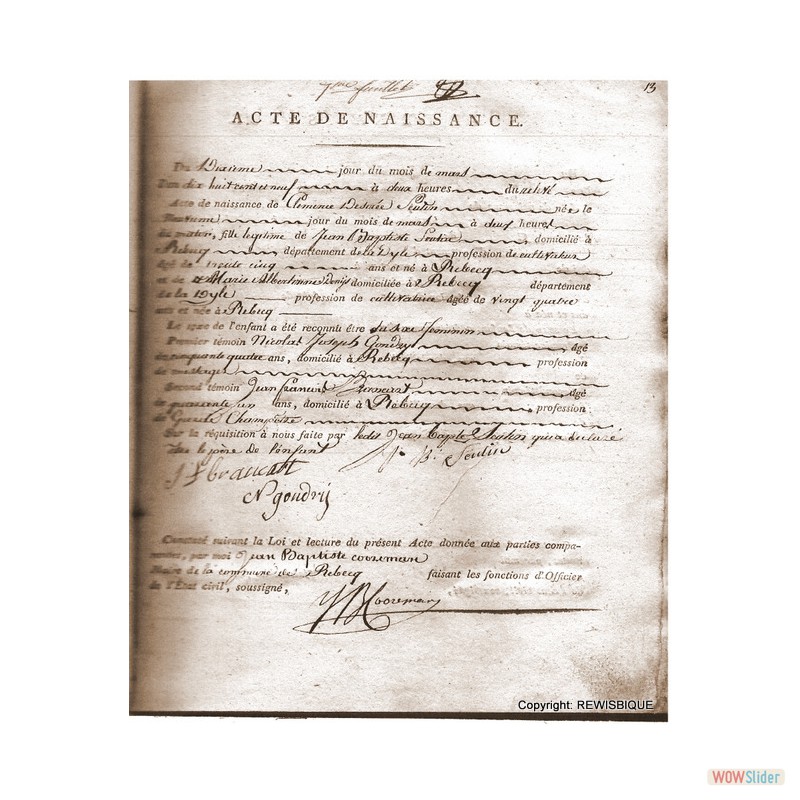 7me feuillet
13
ACTE DE NAISSANCE.
Du Dixieme jour du mois de mars
L'an dix huit cent et neuf à deux heures du relevé
Acte de naissance de Clemence Desirée Seutin née le
jour du mois de mars à deux heures
du matin, fille legitime de Jean Baptiste Seutin, domicilié à
Rebecq département de la Dyle profession de cultivateur
âgé de trente cinq ans et né à Rebecq
et de Marie Albertinne Denys domiciliée à Rebecq département
de la Dyle profession de cultivatrice âgée de vingt quatre
ans et née à Rebecq
Le sexe de l'enfant a été reconnu être du sexe feminin
Premier témoin Nicolas Joseph Gondry âgé
de cinquante quatre ans, domicilié à Rebecq profession
de messager
Second témoin Jean françois âgé
de quarante un ans, domicilié à Rebecq profession
de Garde Champetre
Sur la réquisition à nous faite par ledit Jean Bapte Seutin qui a declaré
être le père de l'enfant
J. Bt. Seutin
N gondrij
Constaté suivant la Loi et lecture du présent Acte donnée aux parties compa-
rantes, par moi Jean Baptiste cooreman
Maire de la commune de Rebecq faisant les fonctions d'Officier
de l'État civil, soussigné,
JB Cooreman
Copyright: REWISBIQUE
WOWSlider